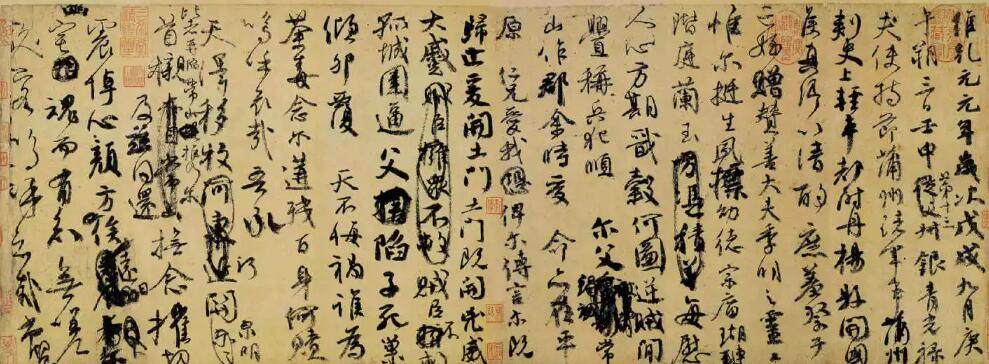 維乾元元年歲次戊戌九月庚
午朔三日壬申第十三從父銀青光祿
夫使持節蒲州諸軍事蒲州
刺史上輕車都尉丹楊縣開國
侯真卿以清酌庶羞祭于
亡姪贈贊善大夫季明之靈
惟爾挺生夙標幼德宗廟瑚璉
階庭蘭玉方憑積善每慰
人心方期戩穀何圖逆賊閒
釁稱兵犯順爾父常
山作郡余時受命亦在平
原仁兄愛我俾爾傳言爾既
歸止爰開土門土門既開凶威
大蹙賊臣擁眾不救賊臣不
孤城圍逼父陷子死巢
傾卵覆天不悔禍誰為
荼毒念爾遘殘百身何贖
嗚呼哀哉吾承
天澤移牧河關泉明
比者再陷常山攜爾
首櫬及茲同還撫念摧切
震悼心顏方俟遠日
宅魂而有知無嗟
久客嗚呼哀哉尚饗